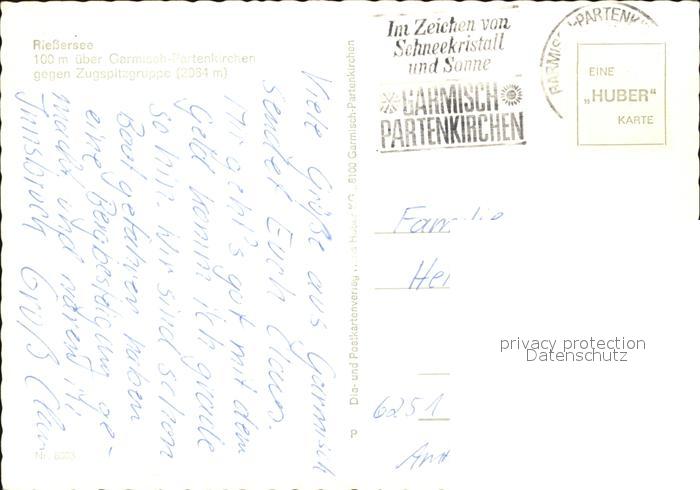 Rießersee
100 m über Garmisch-Partenkirchen
gegen Zugspitzgruppe (2064 m)
Viele Grüße aus Garmisch
sendet Euch
Mir geht's gut mit dem
Geld komm ich grade
so hin. Wir sind schon
Boot gefahren haben
eine Bergbesteigung ge-
macht und waren in
Innsbruck Gruß
Nr. 8003
Dia- und Postkartenverlag 8100 Garmisch-Partenkirchen
P
Im Zeichen von
Schneekristall
und Sonne
GARMISCH
PARTENKIRCHEN
GARMISCH-PARTENK
EINE
„HUBER"
KARTE
Familie
Hei
6251
privacy protection
Datenschutz